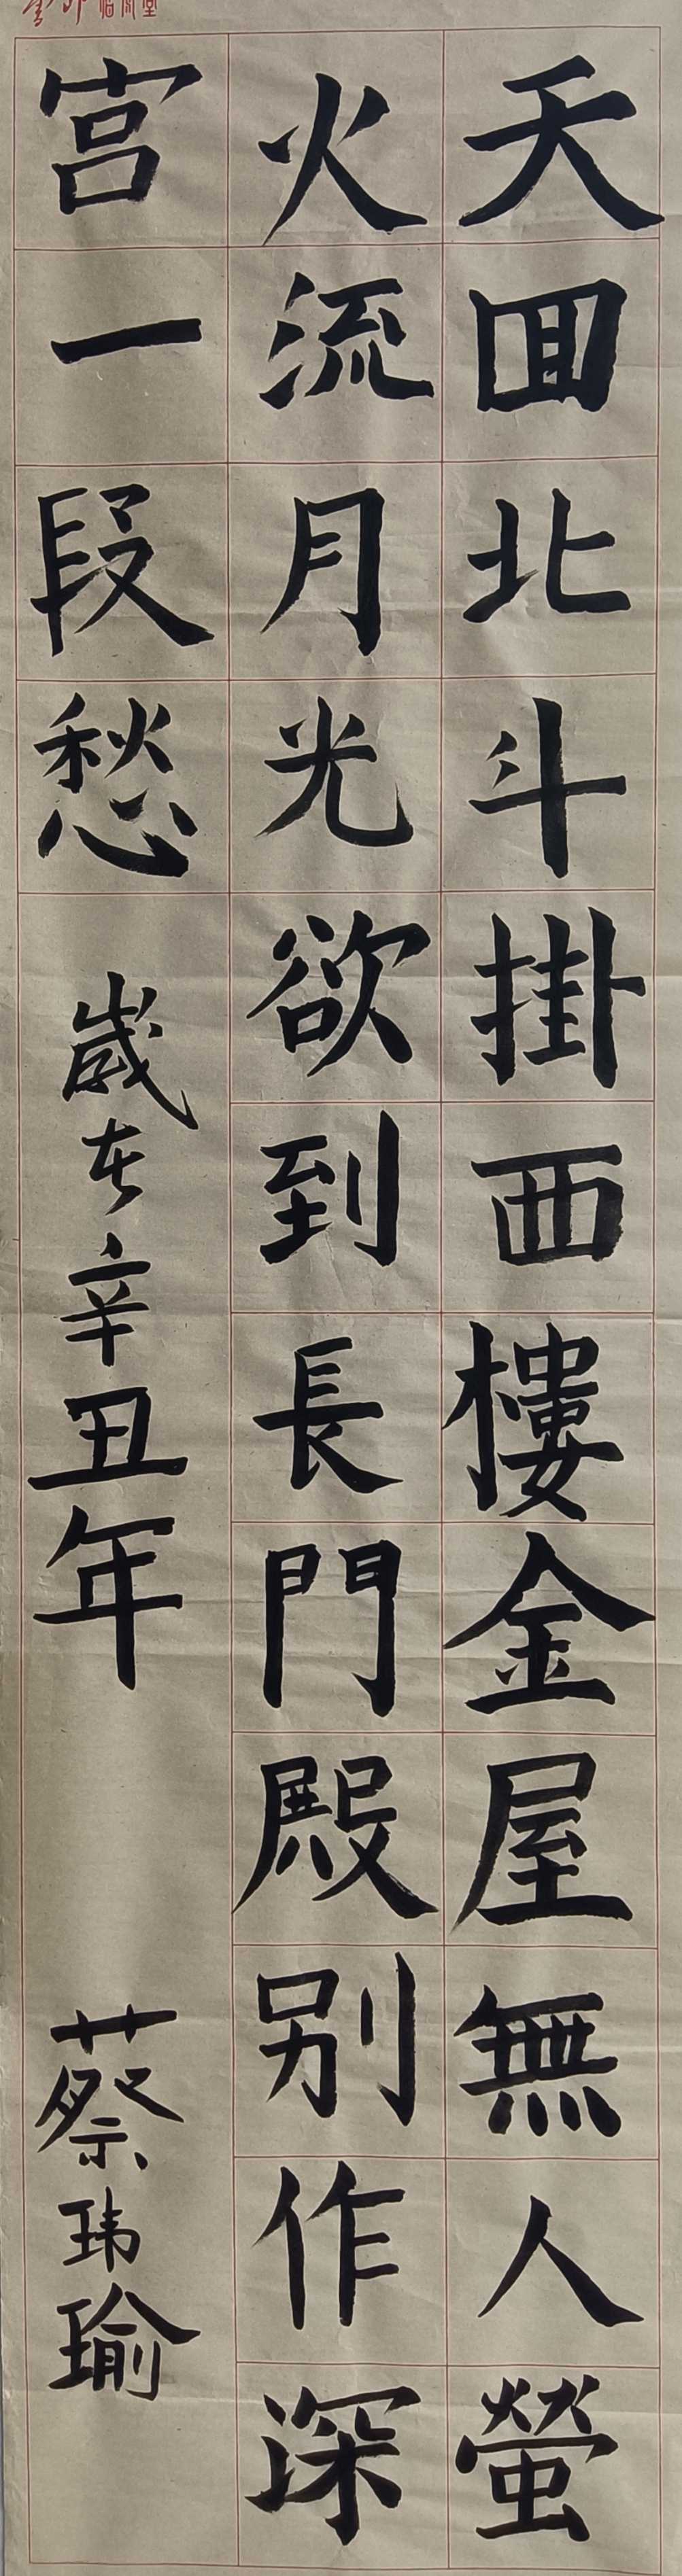 天回北斗掛西樓金屋無人螢
火流月光欲到長門殿别作深
宫一段愁
歲在辛丑年
蔡玮瑜